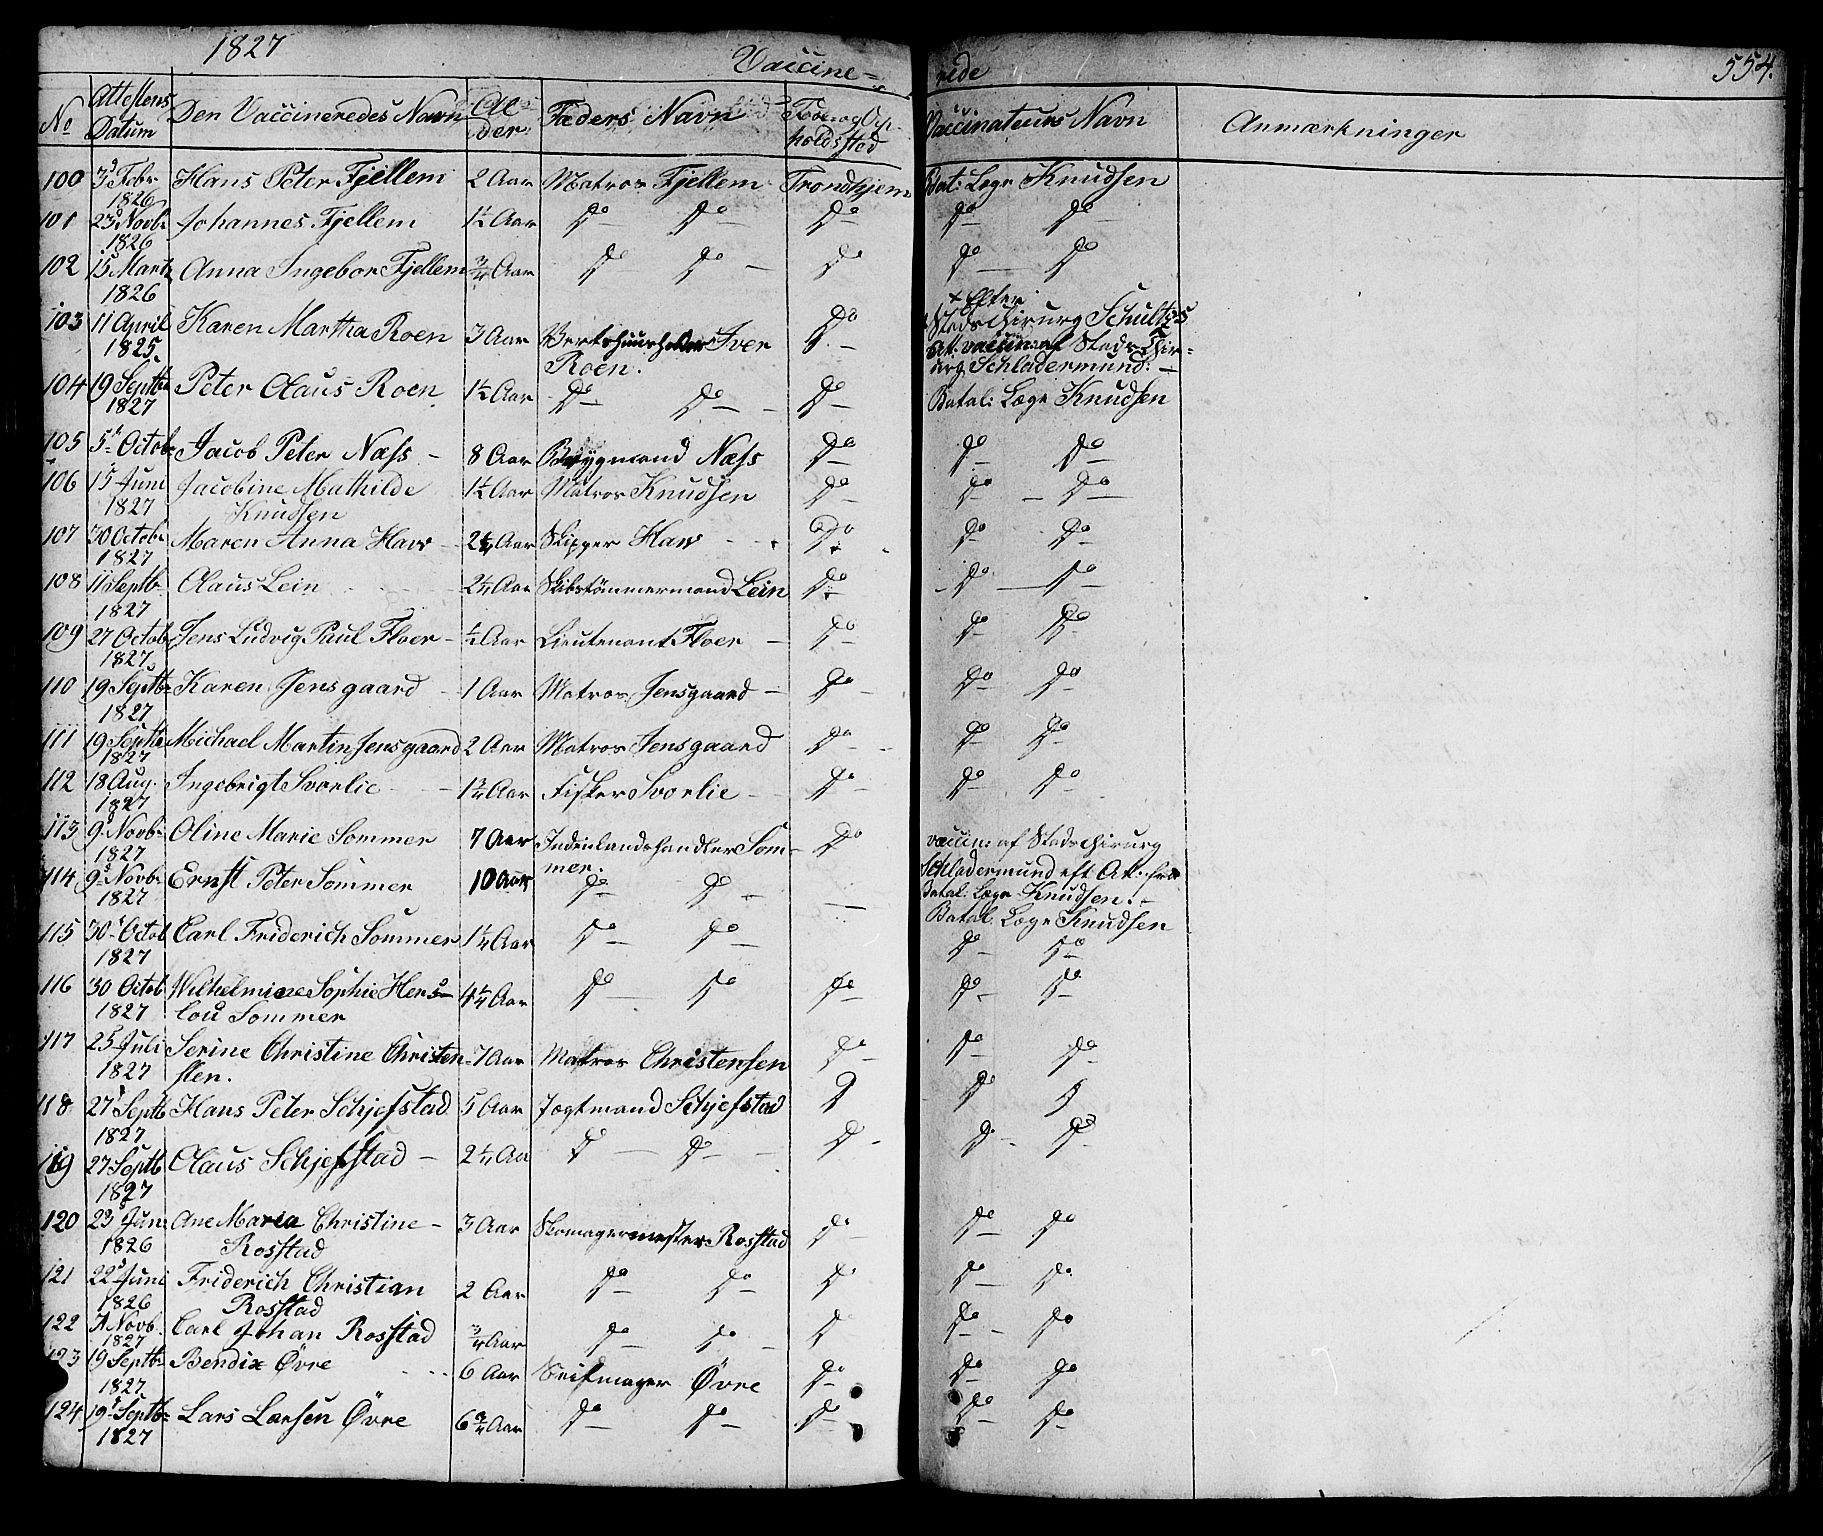 1827 Vaccine=
rede 554.
No Attestens Datum Den Vaccineredes Navn Alder Faders Navn Føde og Opholdsstad Vaccinateurs Navn Anmærkninger
100 3d Febr. 1826 Hans Peter Fjellem 2 Aar Matros Fjellem Trondhjem Bat: Læge Knudsen
101 23d Novbr 1826 Johannes Fjellem 1¼ Aar Do Do Do Do Do
102 15 Martz 1826 Anna Ingebor Fjellem ¾ Aar Do Do Do Do Do
103 11 April 1825. Karen Martha Roen 3 Aar Vertshuusholder Iver Roen. Do + Efter Stadschirurg Schultzs Att. vaccin: af Stads Chirurg Schladermund: —
104 19 Septbr 1827 Peter Olaus Roen 1¼ Aar Do Do Do Batal: Læge Knudsen
105 5t Octob Jacob Peter Næss 8 Aar Brygmand Næss Do Do Do
106 15 Juni 1827 Jacobine Mathilde Knudsen 1¼ Aar Matros Knudsen Do Do Do
107 30 Octobr 1827 Maren Anna Haw 2¼ Aar Skipper Haw Do Do Do
108 11 Septbr 1827 Olaus Lein 2¼ Aar Skibstømmermand Lein Do Do Do
109 27 Octob 1827 Jens Ludvig Paul Floer ½ Aar Lieutenant Floer Do Do Do
110 19 Septbr 1827 Karen Jensgaard 1 Aar Matros Jensgaard Do Do Do
111 19 Septbr 1827 Michael Martin Jensgaard 2 Aar Matros Jensgaard Do Do Do
112 18 Aug. 1827 Ingebrigt Svorlie 1¾ Aar Fisker Svorlie Do Do Do
113 9d Novbr 1827 Oline Marie Sommer 7 Aar Indenlandshandler Sommer. Do vaccin: af Stadschirurg
114 9d Novbr 1827 Ernst Peter Sommer 10 Aar Do Do — Schladermund eft At. fra Batal: Læge Knudsen. —
115 30t Octob 1827 Carl Friderich Sommer 1¼ Aar Do Do Batal. Læge Knudsen Do Do
116 30 Octob 1827 Wilhelmine Sophie Hen=lou Sommer 4¼ Aar Do Do Do Do Do
117 25 Juli 1827 Serine Christine Christensten. 7 Aar Matros Christensen Do Do Do
118 27 Septb 1827 Hans Peter Schjefstad 5 Aar Jogtmand Schjefstad Do Do Do
119 27 Septb 1827 Olaus Schjefstad 2¼ Aa Do Do Do Do Do
120 23d Jun 1826 Ane Maria Christine Rosstad 3 Aar Skomagermester Rosstad Do Do Do
121 22d Juni 1826 Friderich Christian Rosstad 2 Aar Do Do Do Do Do
122 Novb. 1827 Carl Johan Rosstad ¾ Aar Do Do Do Do Do
123 19 Septbr 1827 Bendix Øvre 6 Aar Øvre Do Do Do
124 19 Septbr 1827 Lars Larsen Øvre 6¾ Aar Do Do Do Do Do